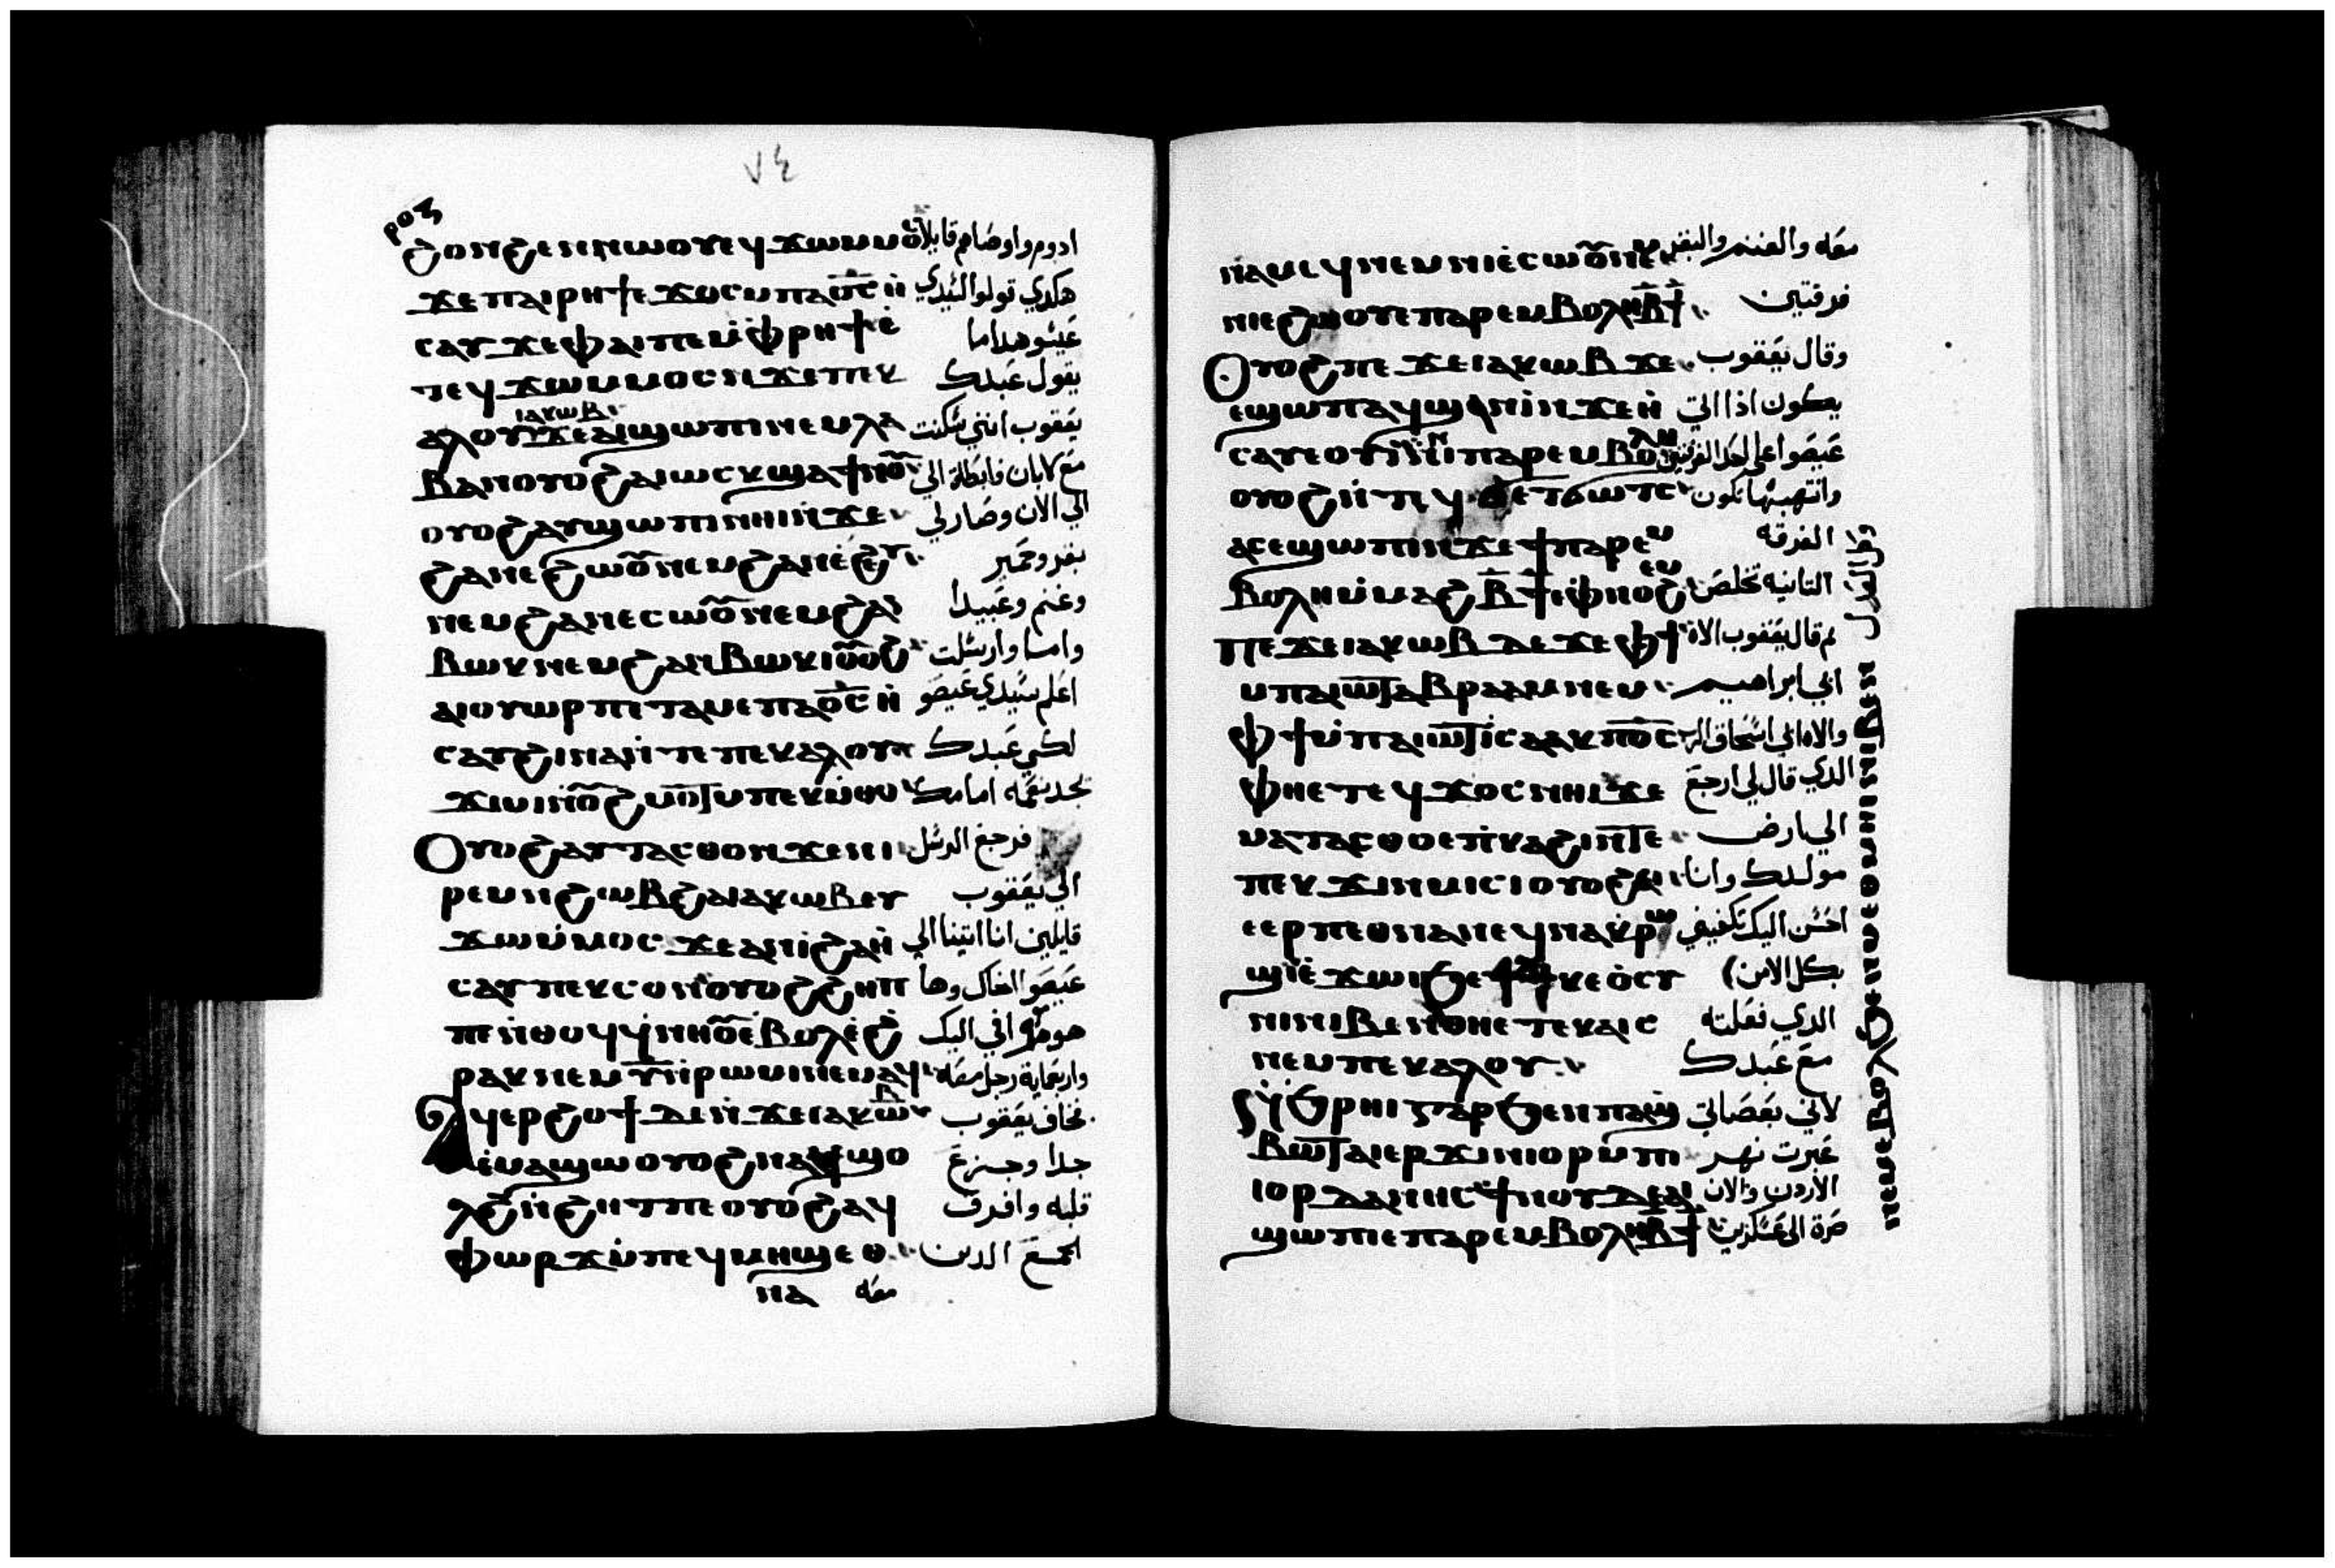 ٧٤
ⲣⲟⲍ
ϩⲟⲛϩⲉⲛⲛⲱⲟⲩ ⲉϥϫⲱⲙⲙⲟ̄ⲥ ادوم واوصاهم قايلا
ϫⲉⲡⲁⲓⲣⲏϯ ⲉϫⲟⲥ ⲙⲡⲁϭ̅ⲥ̅ ⲛ̀ هكدي قولوا لسيدي
ⲥⲁⲩ ϫⲉⲫⲁⲓ ⲡⲉ ⲙ̀ⲫⲣⲏϯ ⲉ̀ عيسو هدا ما
ⲧⲉϥϫⲱⲙⲙⲟⲥ ⲛϫⲉⲡⲉⲕ يقول عبدك
ⲁⲗⲟⲩ ⲓⲁⲕⲱⲃ ϫⲉⲁⲓϣⲱⲡⲓ ⲛⲉⲙⲗⲁ يعقوب انني سكنت
ⲃⲁⲛ ⲟⲩⲟϩ ⲁⲓⲱⲥⲕ ϣⲁϯⲛⲟ̄ⲩ مع لابان فابطات الي
ⲟⲩⲟϩ ⲁⲩϣⲱⲡⲓ ⲛⲏⲓ ⲛϫⲉ الي الان وصار لي
ϩⲁⲛⲉϩⲱⲟ̄ⲩ ⲛⲉⲙϩⲁⲛⲉ̀ϩⲩ بقر وحمير
ⲛⲉⲙϩⲁⲛⲉⲥⲱⲟ̄ⲩ ⲛⲉⲙϩⲁⲛ وغنم وعبيدا
ⲃⲱⲕ ⲛⲉⲙϩⲁⲛⲃⲱⲕⲓ ⲟ̄ⲩⲟϩ واما وارسلت
ⲁⲓⲟⲩⲱⲣⲡ ⲉⲧⲁⲙⲉ ⲡⲁϭ̅ⲥ̅ ⲛ̀ اعلم سيدي عيصو
ⲥⲁⲩ ϩⲓⲛⲁ ⲛ̀ⲧⲉ ⲡⲉⲕⲁⲗⲟⲩ لكي عبدك
ϫⲓⲙⲓ ⲛ̀ⲟ̄ⲩϩⲙⲟ̅ⲧ̅ ⲙⲡⲉⲕⲙ̀ⲑⲟ يجد نعمه امامك
Ⲟⲩⲟϩ ⲁⲩⲧⲁⲥⲑⲟ ⲛϫⲉⲛⲓ فرجع الرسل
ⲣⲉⲙⲛϩⲱⲃ ϩⲁ ⲓⲁⲕⲱⲃ ⲉⲩ الي يعقوب
ϫⲱⲙ̀ⲙⲟⲥ ϫⲉⲁⲛⲓ̀ ϩⲁ ⲛ̀ قايلين انا اتينا الي
ⲥⲁⲩ ⲡⲉⲕⲥⲟⲛ ⲟⲩⲟϩ ϩⲏⲡ عيصو اخاك وها
ⲡⲉ ⲛ̀ⲑⲟϥ ϥⲛⲏⲟ̄ⲩ ⲉ̀ⲃⲟⲗ ⲉ̀ϩ هوداه اتي اليك
ⲣⲁⲕ ⲛⲉⲙ ⲩ̅ ⲛ̀ⲣⲱⲙⲓ ⲛⲉⲙⲁϥ واربعماية رجل معه
Ⲁϥⲉⲣϩⲟϯ ⲇⲉ ⲛ̀ϫⲉⲓⲁⲕⲱⲃ فخاف يعقوب
ⲉ̀ⲙⲁϣⲱ ⲟⲩⲟϩ ⲛⲁϥϣⲟ جدا وجزع
ⲗϩ ⲛ̀ϩⲏⲧ ⲡⲉ ⲟⲩⲟϩ ⲁϥ قلبه وافرق
ⲫⲱⲣϫ ⲙ̀ⲡⲉϥⲙⲏϣ ⲉⲑ الجمع الدين
ⲛⲁ معه
ⲛⲁⲙⲁϥ ⲛⲉⲙ ⲛⲓⲉ̀ⲥⲱⲟ̄ⲩ ⲛⲉⲙ معه والغنم والبقر
ⲛⲓⲉϩⲱⲟⲩ ⲉⲡⲁⲣⲉⲙⲃⲟⲗⲏ ⲃ̅ϯ فرقتين
Ⲟⲩⲟϩ ⲡⲉϫⲉ ⲓⲁⲕⲱⲃ ϫⲉ وقال يعقوب
ⲉϣⲱⲡ ⲁϥϣⲁⲛⲓ̀ ⲛϫⲉ ⲛ̀ يكون اذا اتي
ⲥⲁⲩ ⲉⲟⲩⲓ̀ ⲙ̀ⲡⲁⲣⲉⲙⲃⲟⲗⲏ عيصو اعلي احد الفرقتين
ⲟⲩⲟϩ ⲛ̀ⲧⲉϥϧⲉⲧϧⲱⲧⲥ وانتهبها تكون
ⲁⲥⲉϣⲱⲡⲓ ⲛϫⲉϯⲡⲁⲣⲉⲙ الفرقه
ⲃⲟⲗⲏ ⲙ̀ⲙⲁϩⲃ̅ϯ ⲉⲫⲛⲟϩⲉⲙ التانيه تخلص
Ⲡⲉϫⲉ ⲓⲁⲕⲱⲃ ⲇⲉ ϫⲉ ⲫϯ تم قال يعقوب الاه
ⲙⲡⲁⲓⲱ̅ⲧ̅ ⲁⲃⲣⲁⲁⲙ ⲛⲉⲙ ابي ابراهيم
ⲫϯ ⲙ̀ⲡⲁⲓⲱ̅ⲧ̅ ⲓ̀ⲥⲁⲁⲕ ⲡϭ̅ⲥ̅ والاه ابي اسحاق الرب
ⲫⲏⲉⲧⲉϥϫⲟⲥ ⲛⲏⲓ ϫⲉ الدي قال لي ارجع
ⲙⲁⲧⲁⲥⲑⲟ ⲉⲡ̀ⲕⲁϩⲓ ⲛ̅ⲧ̅ⲉ الي ارض
ⲡⲉⲕϫⲓⲛⲙⲓⲥⲓ ⲟⲩⲟϩ ⲉⲓ مولدك وانا
ⲉⲉⲣⲡⲉⲑⲛⲁⲛⲉϥ ⲛⲁⲕ ⲣⲱ احسن اليك تكفيني
ϣⲓ ⲉ̀ϫⲱⲓ ϧⲉⲛ بكل الامن
ⲛⲓⲃⲉⲛ ⲑⲏⲉⲧⲉⲕⲁⲓⲥ الدي فعلته
ⲛⲉⲙ ⲡⲉⲕⲁⲗⲟⲩ مع عبدك
ϩ̀ⲣⲏⲓ ⲅⲁⲣ ϧⲉⲛ ⲡⲁϣ لاني بعصاتي
ⲃⲱ̅ⲧ̅ ⲁⲓⲉⲣϫⲓⲛⲓⲟⲣ ⲙ̀ⲡⲓ عبرت نهر
ⲓⲟⲣⲇⲁⲛⲏⲥ ϯⲛⲟⲩ ⲇⲉ ⲁⲓ الاردن والان
ϣⲱⲡⲓ ⲉⲡⲁⲣⲉⲙⲃⲟⲗⲏ ⲃ̅ϯ صرة الي عسكرين